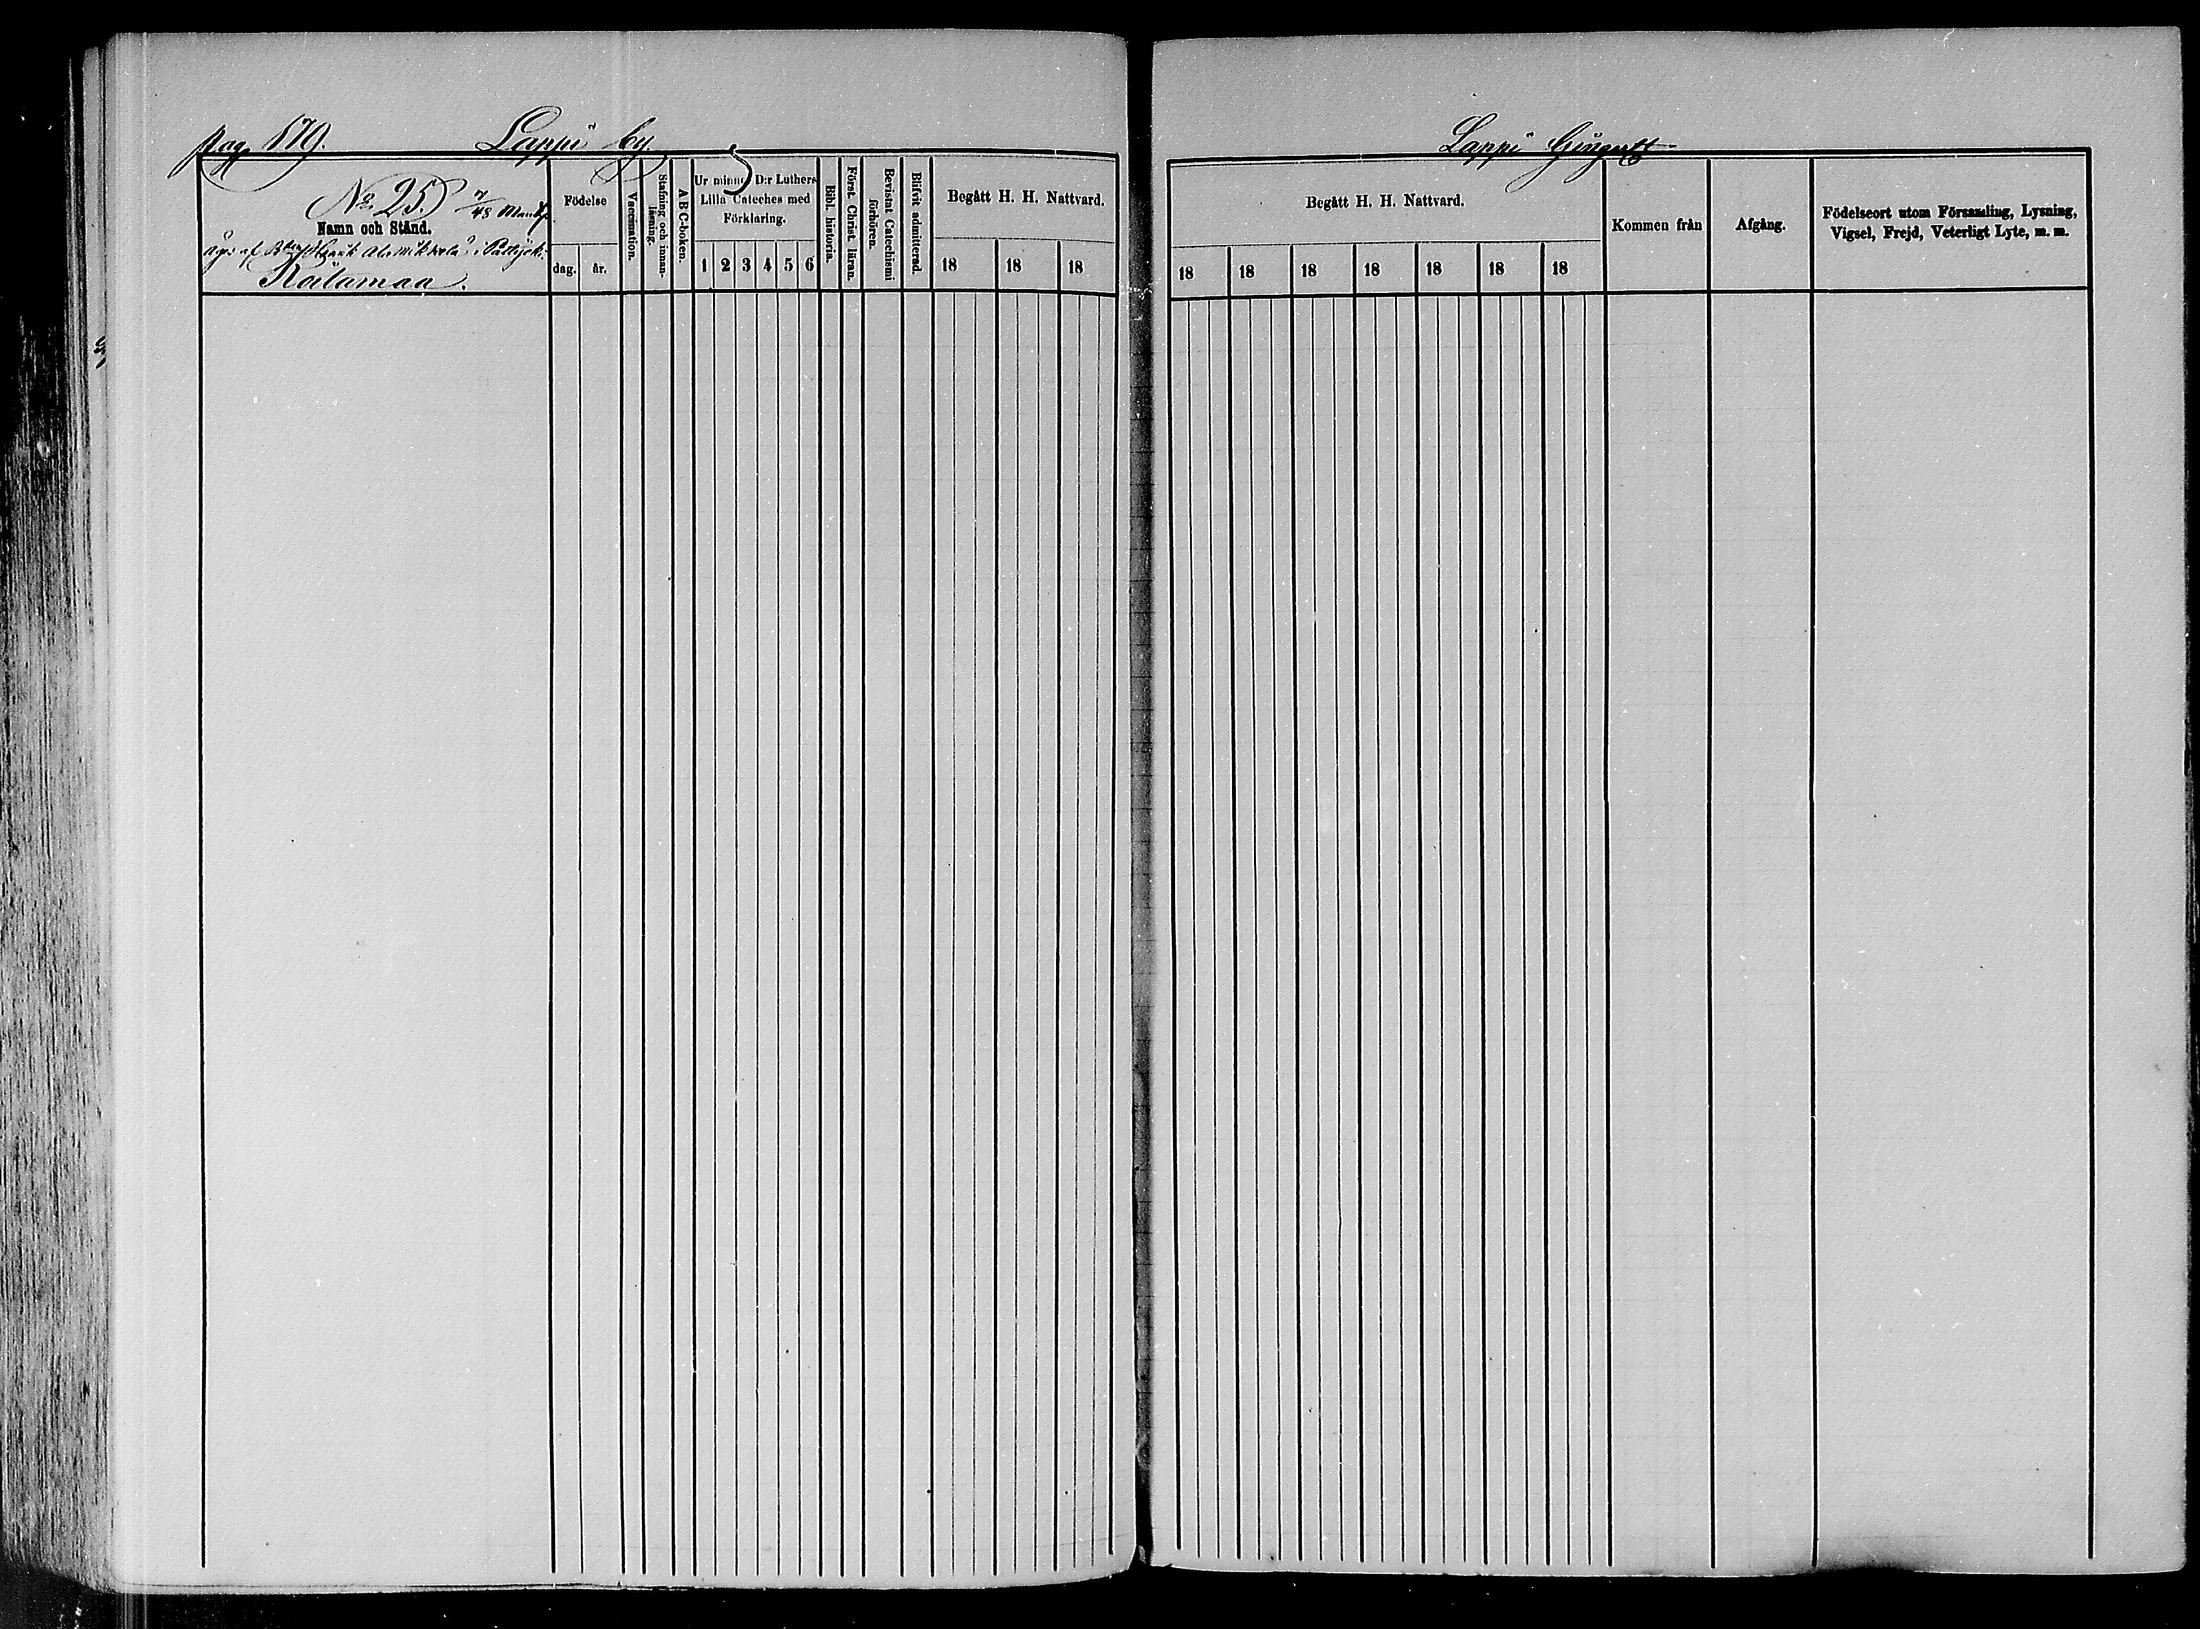 pag. 179. Lappi by
No 25. 7/48 Mant.
Namn och Stånd.
äges af Henrik Alamikkola i Pattijoki.
Raitamaa.
Födelse
dag. år.
Vaccination.
Stafning och innan-
läsning.
A B C-boken.
Ur minne D:r Luthers
Lilla Cateches med
Förklaring.
1 2 3 4 5 6
Bibl. historia.
Först. Christ. läran.
Bevistat Catechismi
förhören.
Blifvit admitterad.
Begått H. H. Nattvard.
18 18 18
Lappi
Begått H. H. Nattvard.
18 18 18 18 18 18 18
Kommen från
Afgång.
Födelseort utom Församling, Lysning,
Vigsel, Frejd, Veterligt Lyte, m. m.